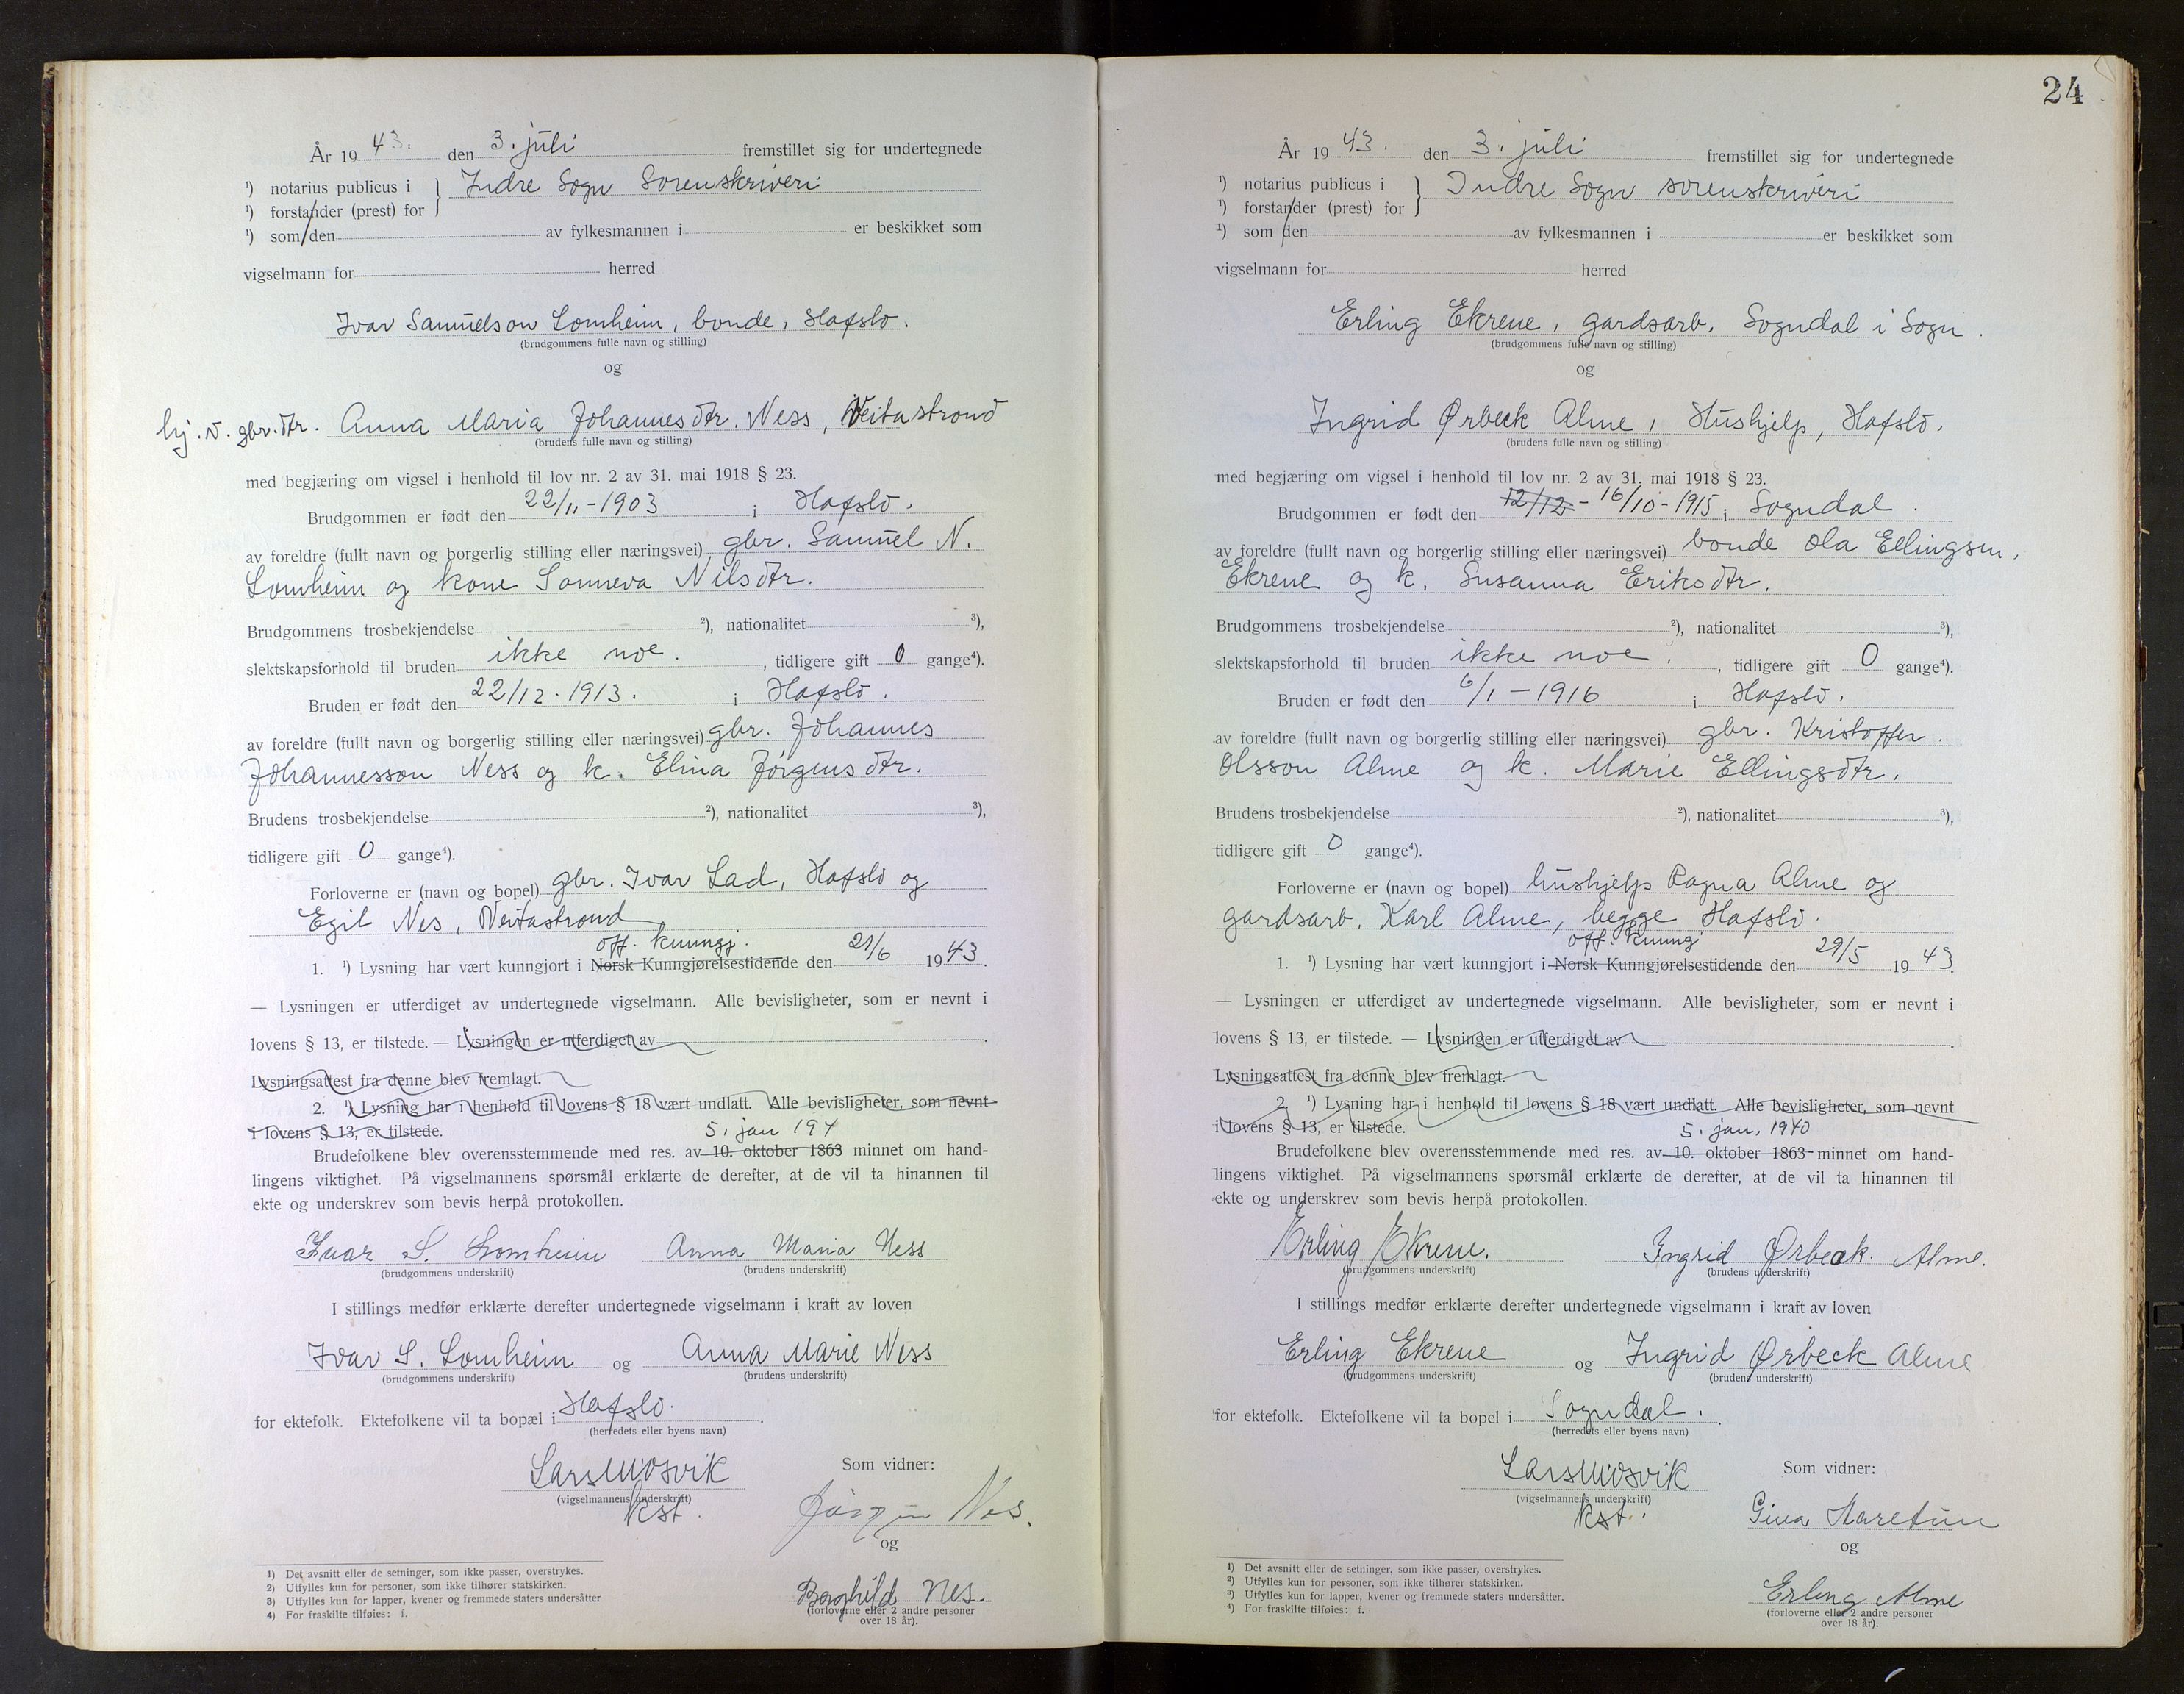 År 19 43. den 3. juli fremstillet sig for undertegnede
¹) notarius publicus i } Indre Sogn Sorenskriveri
¹) forstander (prest) for
¹) som den av fylkesmannen i er beskikket som
vigselmann for herred
Ivar Samuelson Lomheim, bonde, Hafslo.
(brudgommens fulle navn og stilling)
og
hj. v. gbr.dtr. Anna Maria Johannesdtr. Ness, Veitastrond
(brudens fulle navn og stilling)
med begjæring om vigsel i henhold til lov nr. 2 av 31. mai 1918 § 23.
Brudgommen er født den 22/11-1903 i Hafslo.
av foreldre (fullt navn og borgerlig stilling eller næringsvei) gbr. Samuel N.
Lomheim og kone Sonneva Nilsdtr.
Brudgommens trosbekjendelse ²), nationalitet ³),
slektskapsforhold til bruden ikke noe. , tidligere gift 0 gange⁴).
Bruden er født den 22/12-1913. i Hafslo.
av foreldre (fullt navn og borgerlig stilling eller næringsvei) gbr. Johannes
Johannesson Ness og k. Elina Jørgensdtr.
Brudens trosbekjendelse ²), nationalitet ³),
tidligere gift 0 gange⁴).
Forloverne er (navn og bopel) gbr. Ivar Lad, Hafslo og
Egil Nes, Veitastrond
off. kunngj.
1. ¹) Lysning har vært kunngjort i Norsk Kunngjørelsestidende den 21/6 1943.
— Lysningen er utferdiget av undertegnede vigselmann. Alle bevisligheter, som er nevnt i
lovens § 13, er tilstede. — Lysningen er utferdiget av
Lysningsattest fra denne blev fremlagt.
2. ¹) Lysning har i henhold til lovens § 18 vært undlatt. Alle bevisligheter, som nevnt
i lovens § 13, er tilstede.
5. jan 194
Brudefolkene blev overensstemmende med res. av 10. oktober 1863 minnet om hand-
lingens viktighet. På vigselmannens spørsmål erklærte de derefter, at de vil ta hinannen til
ekte og underskrev som bevis herpå protokollen.
Ivar S. Lomheim Anna Maria Ness
(brudgommens underskrift) (brudens underskrift)
I stillings medfør erklærte derefter undertegnede vigselmann i kraft av loven
Ivar S. Lomheim og Anna Marie Ness
(brudgommens underskrift) (brudens underskrift)
for ektefolk. Ektefolkene vil ta bopæl i Hafslo.
(herredets eller byens navn)
Lars Midsvik Som vidner:
(vigselmannens underskrift)
kst. Jørgen Nes.
og
Borghild Nes.
(forloverne eller 2 andre personer
over 18 år).
1) Det avsnitt eller de setninger, som ikke passer, overstrykes.
2) Utfylles kun for personer, som ikke tilhører statskirken.
3) Utfylles kun for lapper, kvener og fremmede staters undersåtter
4) For fraskilte tilføies: f.
24
År 19 43. den 3. juli fremstillet sig for undertegnede
¹) notarius publicus i } Indre Sogn sorenskriveri
¹) forstander (prest) for
¹) som den av fylkesmannen i er beskikket som
vigselmann for herred
Erling Ekrene, gardsarb. Sogndal i Sogn.
(brudgommens fulle navn og stilling)
og
Ingrid Ørbeck Alme, Hushjelp, Hafslo.
(brudens fulle navn og stilling)
med begjæring om vigsel i henhold til lov nr. 2 av 31. mai 1918 § 23.
Brudgommen er født den 12/12 - 16/10-1915 i Sogndal.
av foreldre (fullt navn og borgerlig stilling eller næringsvei) bonde Ola Ellingsen,
Ekrene og k. Susanna Eriksdtr.
Brudgommens trosbekjendelse ²), nationalitet ³),
slektskapsforhold til bruden ikke noe. , tidligere gift 0 gange⁴).
Bruden er født den 6/1-1916 i Hafslo.
av foreldre (fullt navn og borgerlig stilling eller næringsvei) gbr. Kristoffer
Olsson Alme og k. Marie Ellingsdtr.
Brudens trosbekjendelse ²), nationalitet ³),
tidligere gift 0 gange⁴).
Forloverne er (navn og bopel) hushjelp Ragna Alme og
gardsarb. Karl Alme, begge Hafslo.
off. kunng
1. ¹) Lysning har vært kunngjort i Norsk Kunngjørelsestidende den 29/5 1943.
— Lysningen er utferdiget av undertegnede vigselmann. Alle bevisligheter, som er nevnt i
lovens § 13, er tilstede. — Lysningen er utferdiget av
Lysningsattest fra denne blev fremlagt.
2. ¹) Lysning har i henhold til lovens § 18 vært undlatt. Alle bevisligheter, som nevnt
i lovens § 13, er tilstede.
5. jan. 1940
Brudefolkene blev overensstemmende med res. av 10. oktober 1863 minnet om hand-
lingens viktighet. På vigselmannens spørsmål erklærte de derefter, at de vil ta hinannen til
ekte og underskrev som bevis herpå protokollen.
Erling Ekrene. Ingrid Ørbeck. Alme.
(brudgommens underskrift) (brudens underskrift)
I stillings medfør erklærte derefter undertegnede vigselmann i kraft av loven
Erling Ekrene og Ingrid Ørbeck Alme
(brudgommens underskrift) (brudens underskrift)
for ektefolk. Ektefolkene vil ta bopel i Sogndal.
(herredets eller byens navn)
Lars Midsvik Som vidner:
(vigselmannens underskrift)
kst. Gina
og
Erling Alme
(forloverne eller 2 andre personer
over 18 år).
¹) Det avsnitt eller de setninger, som ikke passer, overstrykes.
²) Utfylles kun for personer, som ikke tilhører statskirken.
³) Utfylles kun for lapper, kvener og fremmede staters undersåtter.
⁴) For fraskilte tilføies: f.